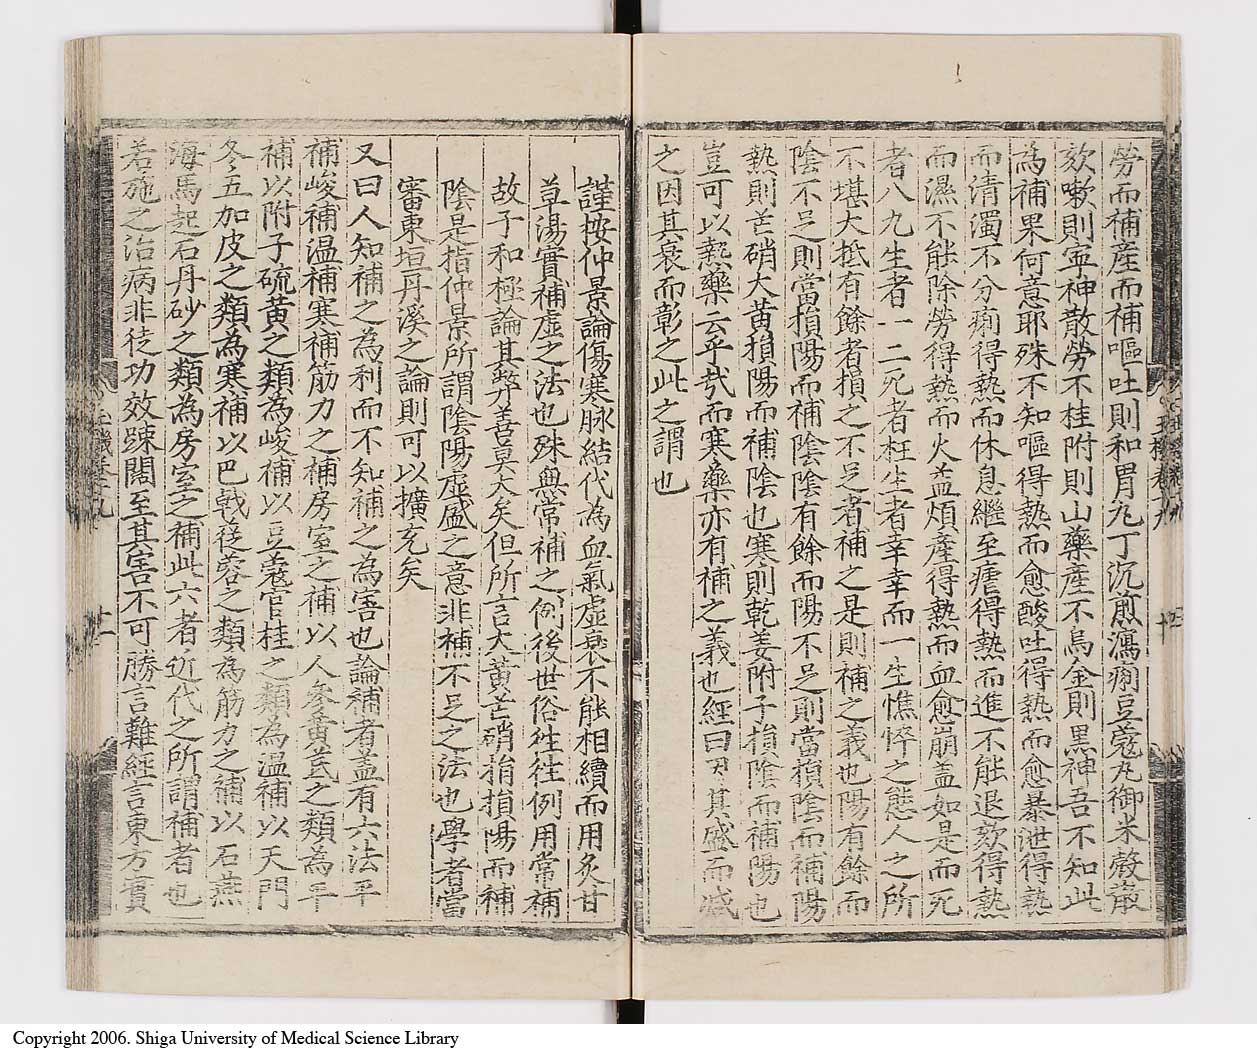 勞而補產而補嘔吐則和胃丸丁沉煎瀉痢豆蔻丸御米殼散
欬嗽則寍神散勞不桂附則山藥產不烏金則黒神吾不知此
為補果何意耶殊不知嘔得熱而愈酸吐得熱而愈暴泄得熱
而清濁不分痢得熱而休息繼至瘧得熱而進不能退欬得熱
而濕不能除勞得熱而火益煩產得熱而血愈崩盖如是而死
者八九生者一二死者枉生者幸幸而一生憔悴之態人之所
不堪大抵有餘者損之不足者補之是則補之義也陽有餘而
陰不足則當損陽而補陰陰有餘而陽不足則當損陰而補陽
熱則芒硝大黃損陽而補陰也寒則乾姜附子損陰而補陽也
豈可以熱藥云乎㢤而寒藥亦有補之義也經曰因其盛而减
之因其衰而彰之此之謂也
謹按仲景論傷寒脉結代為血氣虛衰不能相續而用炙甘
草湯實補虛之法也殊與常補之例後世俗徃徃例用常補
故子和極論其弊善莫大矣但所言大黃芒硝指損陽而補
陰是指仲景所謂陰陽虛盛之意非補不足之法也學者當
審東垣丹溪之論則可以擴充矣
又曰人知補之為利而不知補之為害也論補者盖有六法平
補峻補温補寒補筋力之補房室之補以人參黃芪之類為平
補以附子硫黃之類為峻補以豆蔻官桂之類為温補以天門
冬五加皮之類為寒補以巴戟蓯蓉之類為筋力之補以石燕
海馬起石丹砂之類為房室之補此六者近代之所謂補者也
若施之治病非徒功效踈闊至其害不可勝言難經言東方實